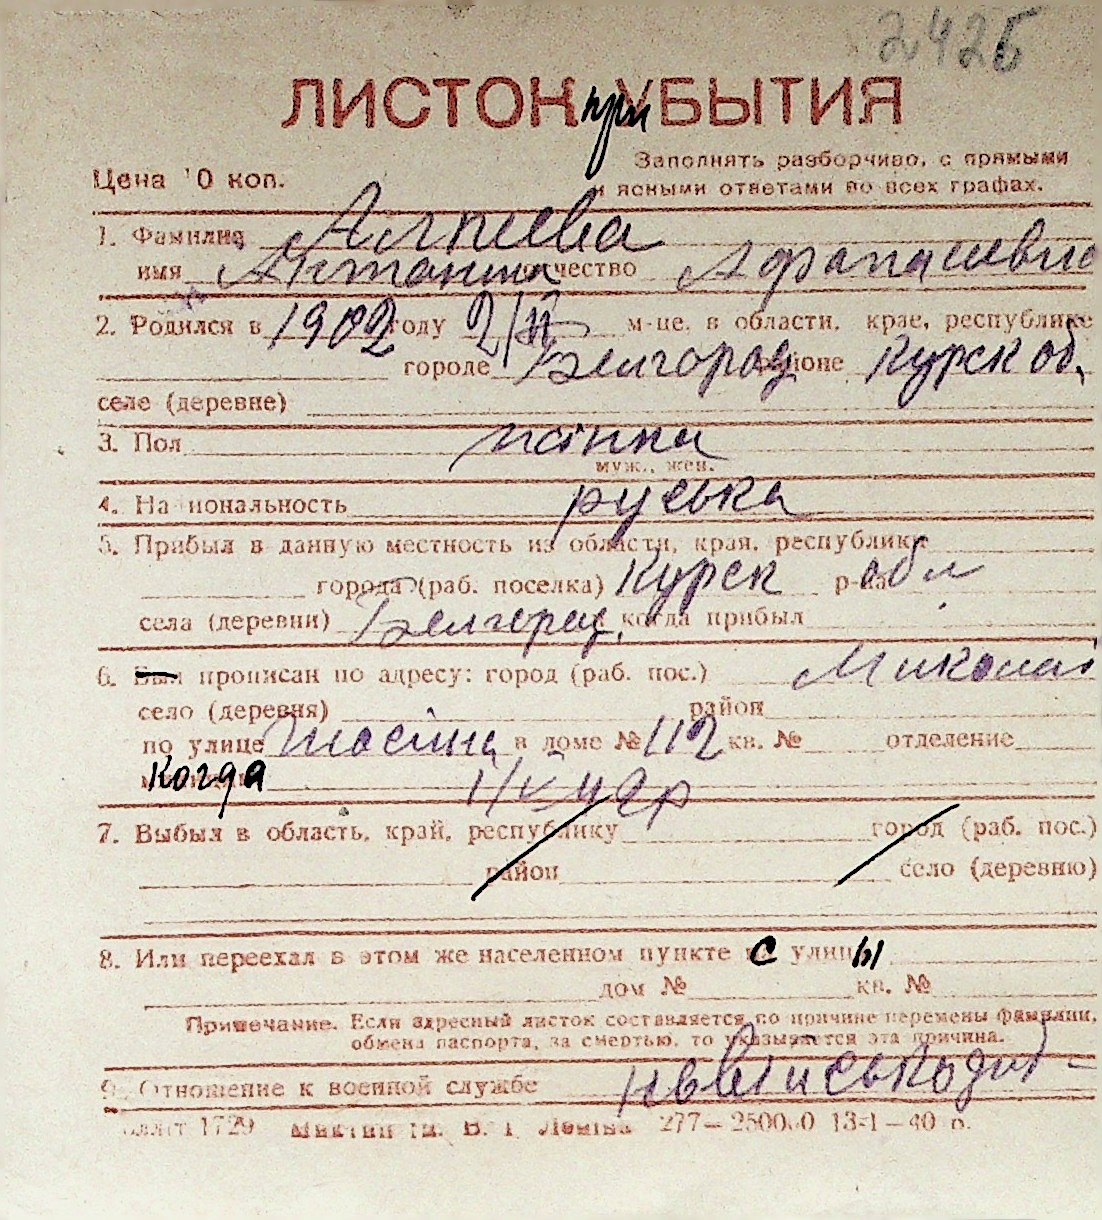 2426
ЛИСТОК при УБЫТИЯ
Заполнять разборчиво, с прямыми
Цена 10 коп.
и ясными ответами во всех графах.
1. Фамилия Алпеева
имя Антонина отчество Афанасіевна
2. Родился в 1902 году 2/II м-це, в области, крае, республике
городе Белгород районе Курск об.
селе (деревне)
3. Пол жінка
муж., жен.
4. Национальность руська
5. Прибыл в данную местность из области, края, республики
города (раб. поселка) Курск р-на обл
села (деревни) Белгород, когда прибыл
6. Был прописан по адресу: город (раб. пос.) Миколаї
село (деревня) район
по улице в доме № 112 кв. № отделение
Когда
7. Выбыл в область, край, республику город (раб. пос.)
район село (деревню)
8. Или переехал в этом же населенном пункте с улицы
дом № кв. №
Примечание. Если адресный листок составляется по причине перемены фамилии,
обмена паспорта, за смертью, то указывается эта причина.
9. Отношение к военной службе
1729 В. І. Леніна 277—250000 13-I—40 р.